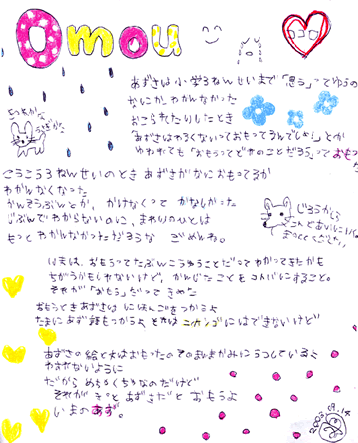 Omou
ココロ
あずさは小学3ねんせいまで「思う」ってゆうの
なにか、わかんなかった
おこられたりしたとき
「あずさはわるくないっておもってるんでしょ！」とか
いわれても「おもうってどのことだろう」っておもっ
た
こうこう3ねんせいのとき あずさがなにおもってるか
わかんなくなった
かんそうぶんとか、かけなくって かなしかった
じぶんでわからないのに、まわりのひとは
もっとわかんなかっただろうな ごめんね。
いまは、おもうってたぶんこうゆうことだってわかってきたかも
ちがうかもしれないけど、かんじたことをコトバにすること。
それが「おもう」だってきめた
おもうときあずさは にほんごをつかうよ
ニホンゴにはできないけど
あずさの絵と犬はおもったのそのまいまかみにうつしているよ
わすれないように
だから めちゃくちゃなのだけど
それが きっと あずさだと おもうよ
いまのあず。